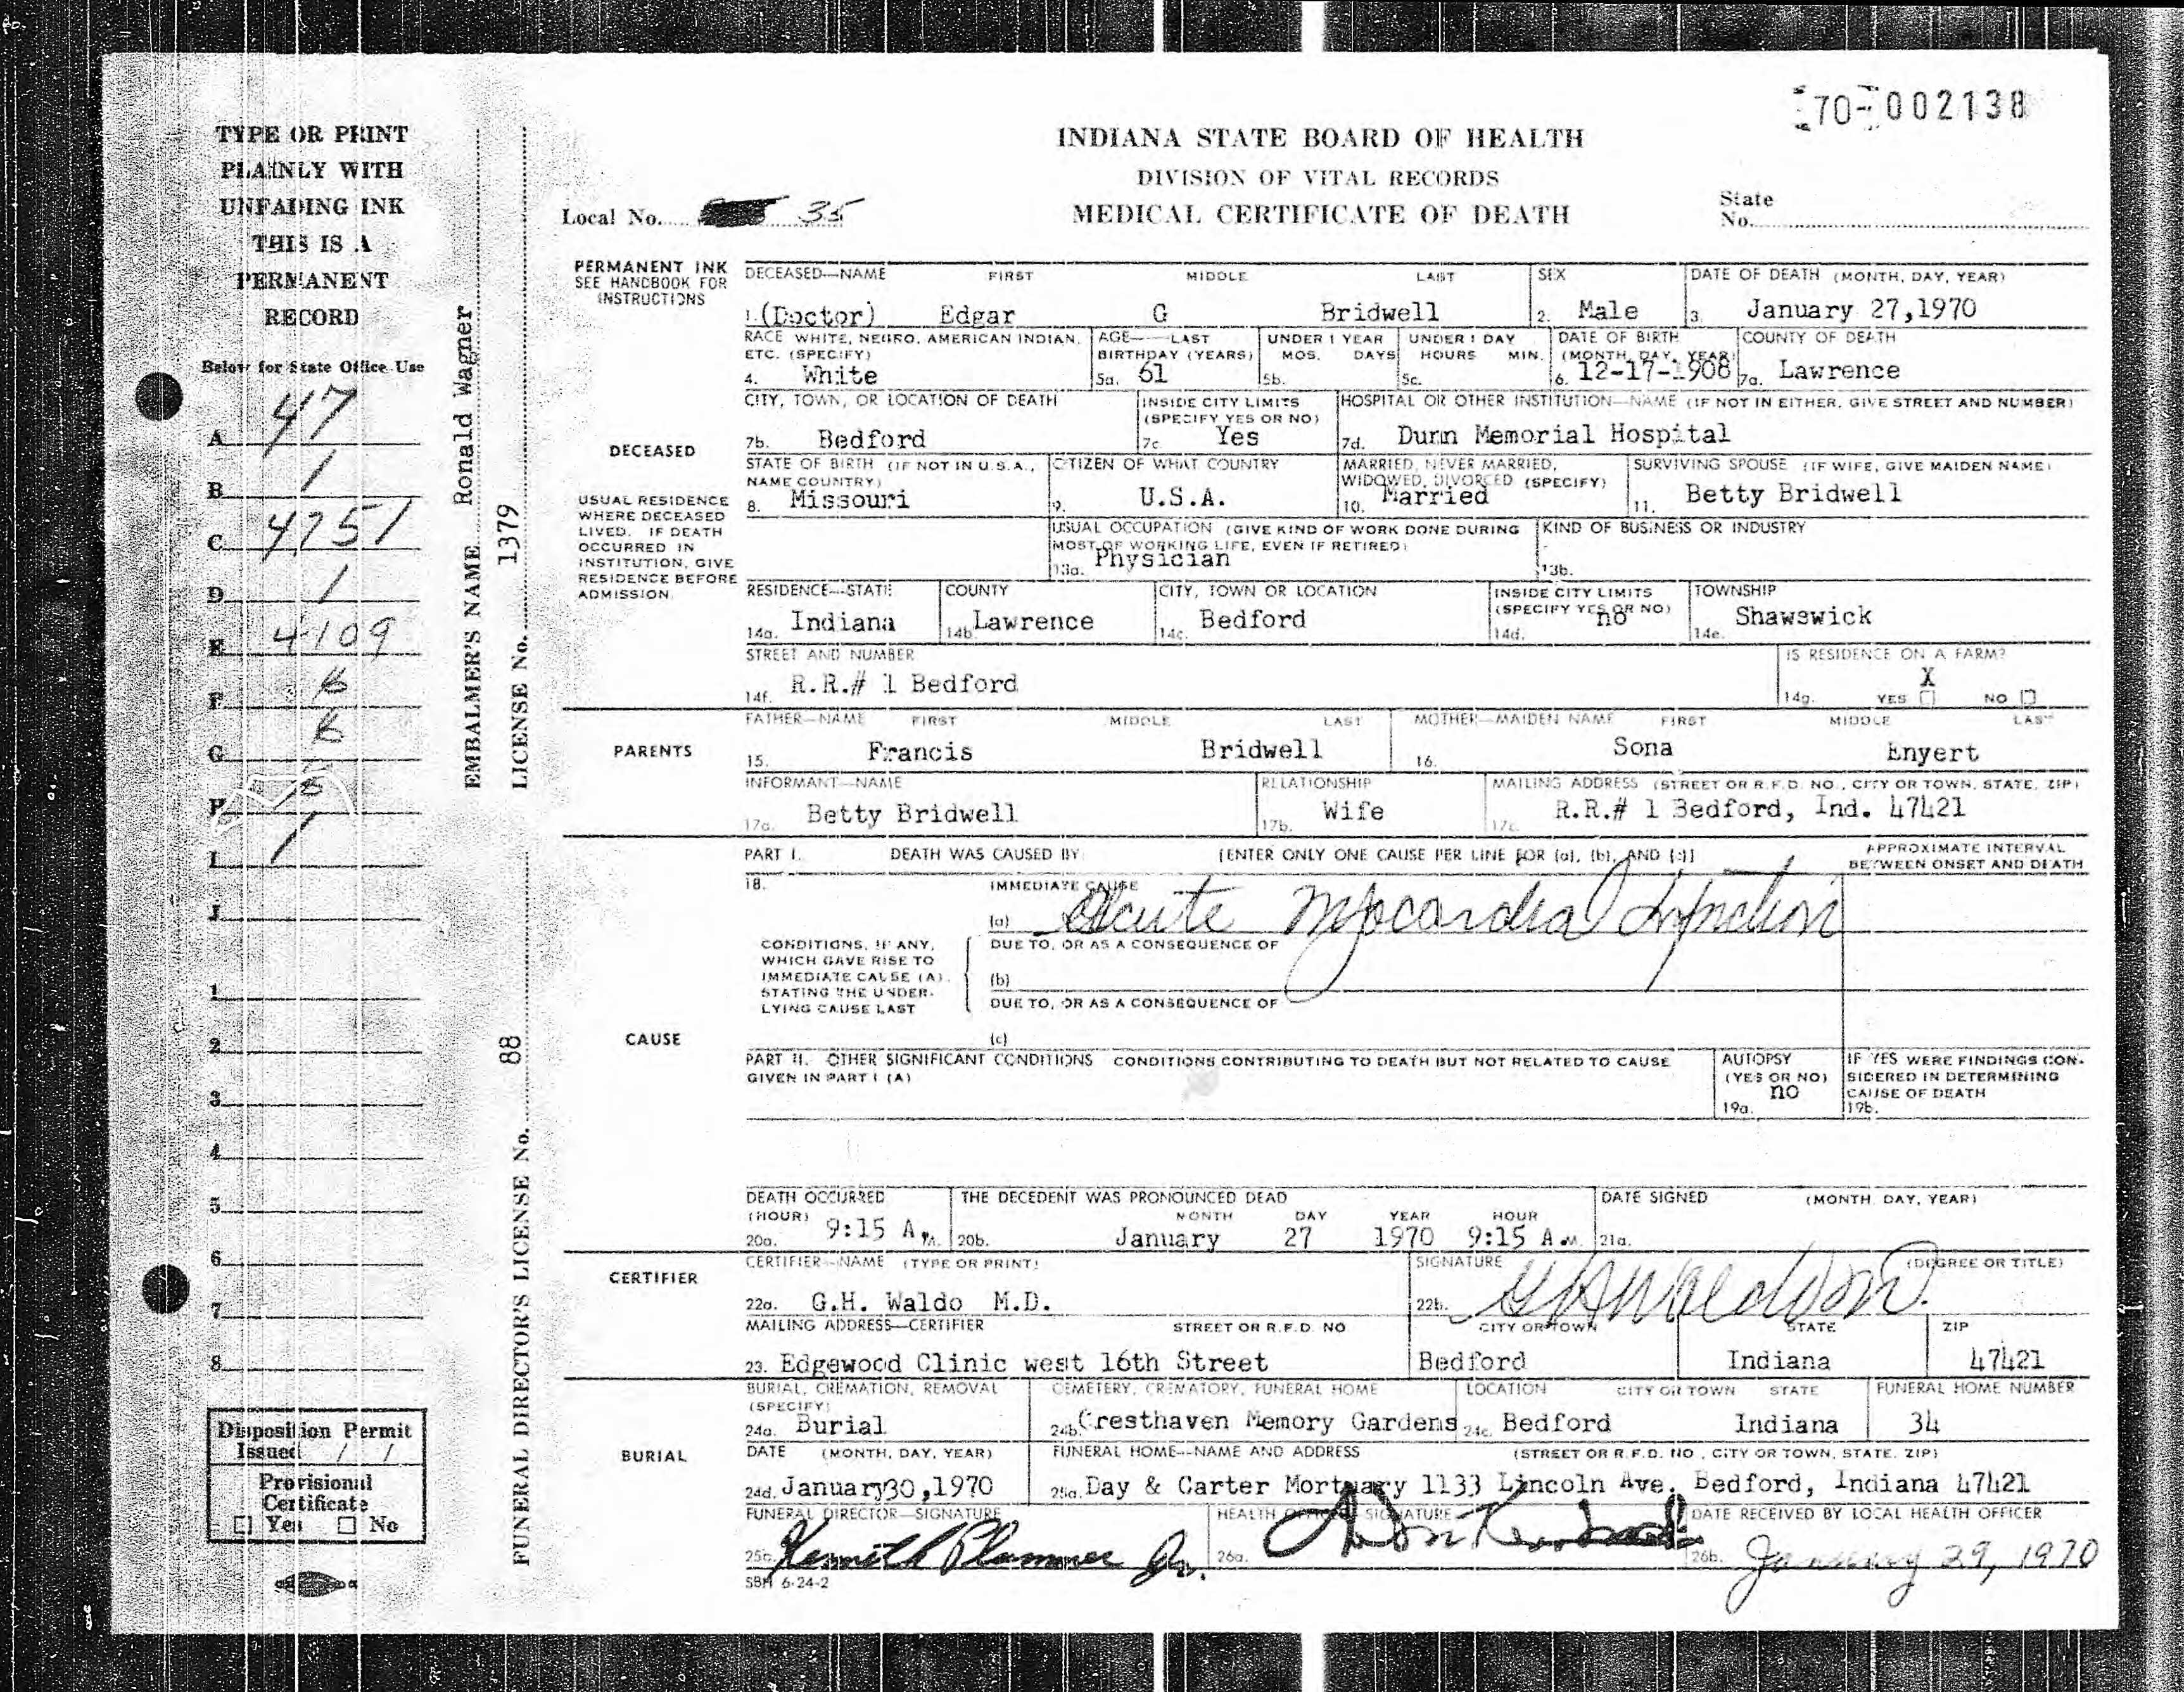 70- 002138
TYPE OR PRINT
PLAINLY WITH
UNFADING INK
THIS IS A
PERMANENT
RECORD
Below for State Office Use
A. 47
B. 1
C. 4751
D. 1
E. 4109
F.
G.
H.
I. 1
J.
1.
2.
3.
4.
5.
6.
7.
8.
Disposition Permit
Issued / /
Provisional
Certificate
☐ Yes ☐ No
EMBALMER'S NAME Ronald Wagner
LICENSE No. 1379
FUNERAL DIRECTOR'S LICENSE No. 88
INDIANA STATE BOARD OF HEALTH
DIVISION OF VITAL RECORDS
MEDICAL CERTIFICATE OF DEATH
Local No. 35
State
No.
PERMANENT INK
SEE HANDBOOK FOR
INSTRUCTIONS
DECEASED—NAME FIRST MIDDLE LAST SEX DATE OF DEATH (MONTH, DAY, YEAR)
1. (Doctor) Edgar G Bridwell 2. Male 3. January 27,1970
RACE WHITE, NEGRO, AMERICAN INDIAN, AGE—LAST UNDER 1 YEAR UNDER 1 DAY DATE OF BIRTH COUNTY OF DEATH
ETC. (SPECIFY) BIRTHDAY (YEARS) MOS. DAYS HOURS MIN. (MONTH, DAY, YEAR)
4. White 5a. 61 5b. 5c. 6. 12-17-1908 7a. Lawrence
CITY, TOWN, OR LOCATION OF DEATH INSIDE CITY LIMITS HOSPITAL OR OTHER INSTITUTION—NAME (IF NOT IN EITHER, GIVE STREET AND NUMBER)
(SPECIFY YES OR NO)
7b. Bedford 7c. Yes 7d. Dunn Memorial Hospital
DECEASED
STATE OF BIRTH (IF NOT IN U.S.A., CITIZEN OF WHAT COUNTRY MARRIED, NEVER MARRIED, SURVIVING SPOUSE (IF WIFE, GIVE MAIDEN NAME)
NAME COUNTRY) WIDOWED, DIVORCED (SPECIFY)
8. Missouri 9. U.S.A. 10. Married 11. Betty Bridwell
USUAL RESIDENCE
WHERE DECEASED
LIVED. IF DEATH
OCCURRED IN
INSTITUTION, GIVE
RESIDENCE BEFORE
ADMISSION.
USUAL OCCUPATION (GIVE KIND OF WORK DONE DURING KIND OF BUSINESS OR INDUSTRY
MOST OF WORKING LIFE, EVEN IF RETIRED)
13a. Physician 13b.
RESIDENCE—STATE COUNTY CITY, TOWN OR LOCATION INSIDE CITY LIMITS TOWNSHIP
(SPECIFY YES OR NO)
14a. Indiana 14b. Lawrence 14c. Bedford 14d. no 14e. Shawswick
STREET AND NUMBER IS RESIDENCE ON A FARM?
14f. R.R.# 1 Bedford 14g. YES ☐ X NO ☐
PARENTS
FATHER—NAME FIRST MIDDLE LAST MOTHER—MAIDEN NAME FIRST MIDDLE LAST
15. Francis Bridwell 16. Sona Enyert
INFORMANT—NAME RELATIONSHIP MAILING ADDRESS (STREET OR R.F.D. NO., CITY OR TOWN, STATE, ZIP)
17a. Betty Bridwell 17b. Wife 17c. R.R.# 1 Bedford, Ind. 47421
PART I. DEATH WAS CAUSED BY: [ENTER ONLY ONE CAUSE PER LINE FOR (a), (b), AND (c)] APPROXIMATE INTERVAL
BETWEEN ONSET AND DEATH
18. IMMEDIATE CAUSE
(a) Acute Myocardial Infarction
CONDITIONS, IF ANY,
WHICH GAVE RISE TO
IMMEDIATE CAUSE (A),
STATING THE UNDER-
LYING CAUSE LAST
DUE TO, OR AS A CONSEQUENCE OF
(b)
DUE TO, OR AS A CONSEQUENCE OF
(c)
CAUSE
PART II. OTHER SIGNIFICANT CONDITIONS CONDITIONS CONTRIBUTING TO DEATH BUT NOT RELATED TO CAUSE
GIVEN IN PART I (A)
AUTOPSY
(YES OR NO)
19a. no
IF YES WERE FINDINGS CON-
SIDERED IN DETERMINING
CAUSE OF DEATH
19b.
DEATH OCCURRED THE DECEDENT WAS PRONOUNCED DEAD DATE SIGNED (MONTH, DAY, YEAR)
(HOUR) MONTH DAY YEAR HOUR
20a. 9:15 A M. 20b. January 27 1970 9:15 A M. 21a.
CERTIFIER
CERTIFIER—NAME (TYPE OR PRINT) SIGNATURE (DEGREE OR TITLE)
22a. G.H. Waldo M.D. 22b. GH Waldo M.
MAILING ADDRESS—CERTIFIER STREET OR R.F.D. NO CITY OR TOWN STATE ZIP
23. Edgewood Clinic west 16th Street Bedford Indiana 47421
BURIAL
BURIAL, CREMATION, REMOVAL CEMETERY, CREMATORY, FUNERAL HOME LOCATION CITY OR TOWN STATE FUNERAL HOME NUMBER
(SPECIFY)
24a. Burial 24b. Cresthaven Memory Gardens 24c. Bedford Indiana 34
DATE (MONTH, DAY, YEAR) FUNERAL HOME—NAME AND ADDRESS (STREET OR R.F.D. NO., CITY OR TOWN, STATE, ZIP)
24d. January30,1970 25a. Day & Carter Mortuary 1133 Lincoln Ave. Bedford, Indiana 47421
FUNERAL DIRECTOR—SIGNATURE HEALTH OFFICER SIGNATURE DATE RECEIVED BY LOCAL HEALTH OFFICER
25b. Kenneth Plummer Jr. 26a. 26b. January 29, 1970
SBH 6-24-2